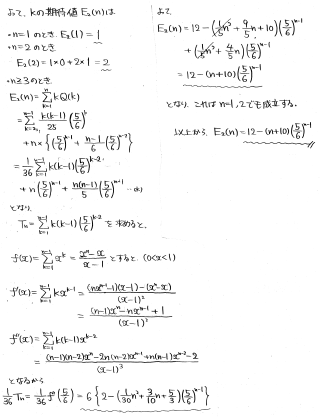 よって、Kの期待値 E₂(n)は
・n=1 のとき、E₂(1) = 1
・n=2 のとき
E₂(2) = 1×0 + 2×1 = 2
・n≧3のとき
E₂(n) = Σ_{k=1}^{n} kQ(k)
= Σ_{k=2}^{n-1} k(k-1)/25 (5/6)^k
+ n × { (5/6)^{n-1} + (n-1)/6 (5/6)^{n-2} }
= 1/36 Σ_{k=1}^{n-1} k(k-1)(5/6)^{k-2}
+ n(5/6)^{n-1} + n(n-1)/5 (5/6)^{n-1}
となり、
Tn = Σ_{k=1}^{n-1} k(k-1)(5/6)^{k-2} を求めると、
f(x) = Σ_{k=1}^{n-1} x^k = (x^n - x)/(x-1) とすると、(0<x<1)
f'(x) = Σ_{k=1}^{n-1} kx^{k-1} = {(nx^{n-1}-1)(x-1)-(x^n-x)}/(x-1)²
= {(n-1)x^n - nx^{n-1} + 1}/(x-1)²
f''(x) = Σ_{k=1}^{n-1} k(k-1)x^{k-2}
= {(n-1)(n-2)x^n - 2n(n-2)x^{n-1} + n(n-1)x^{n-2} - 2}/(x-1)³
となるから
1/36 Tn = 1/36 f''(5/6) = 6{2 - (1/30 n² + 3/10 n + 5/3)(5/6)^{n-1}}
よって、
E₂(n) = 12 - (1/5 n² + 9/5 n + 10)(5/6)^{n-1}
+ (1/5 n² + 4/5 n)(5/6)^{n-1}
= 12 - (n+10)(5/6)^{n-1}
となり、これは n=1, 2 でも成立する。
以上から、E₂(n) = 12 - (n+10)(5/6)^{n-1}